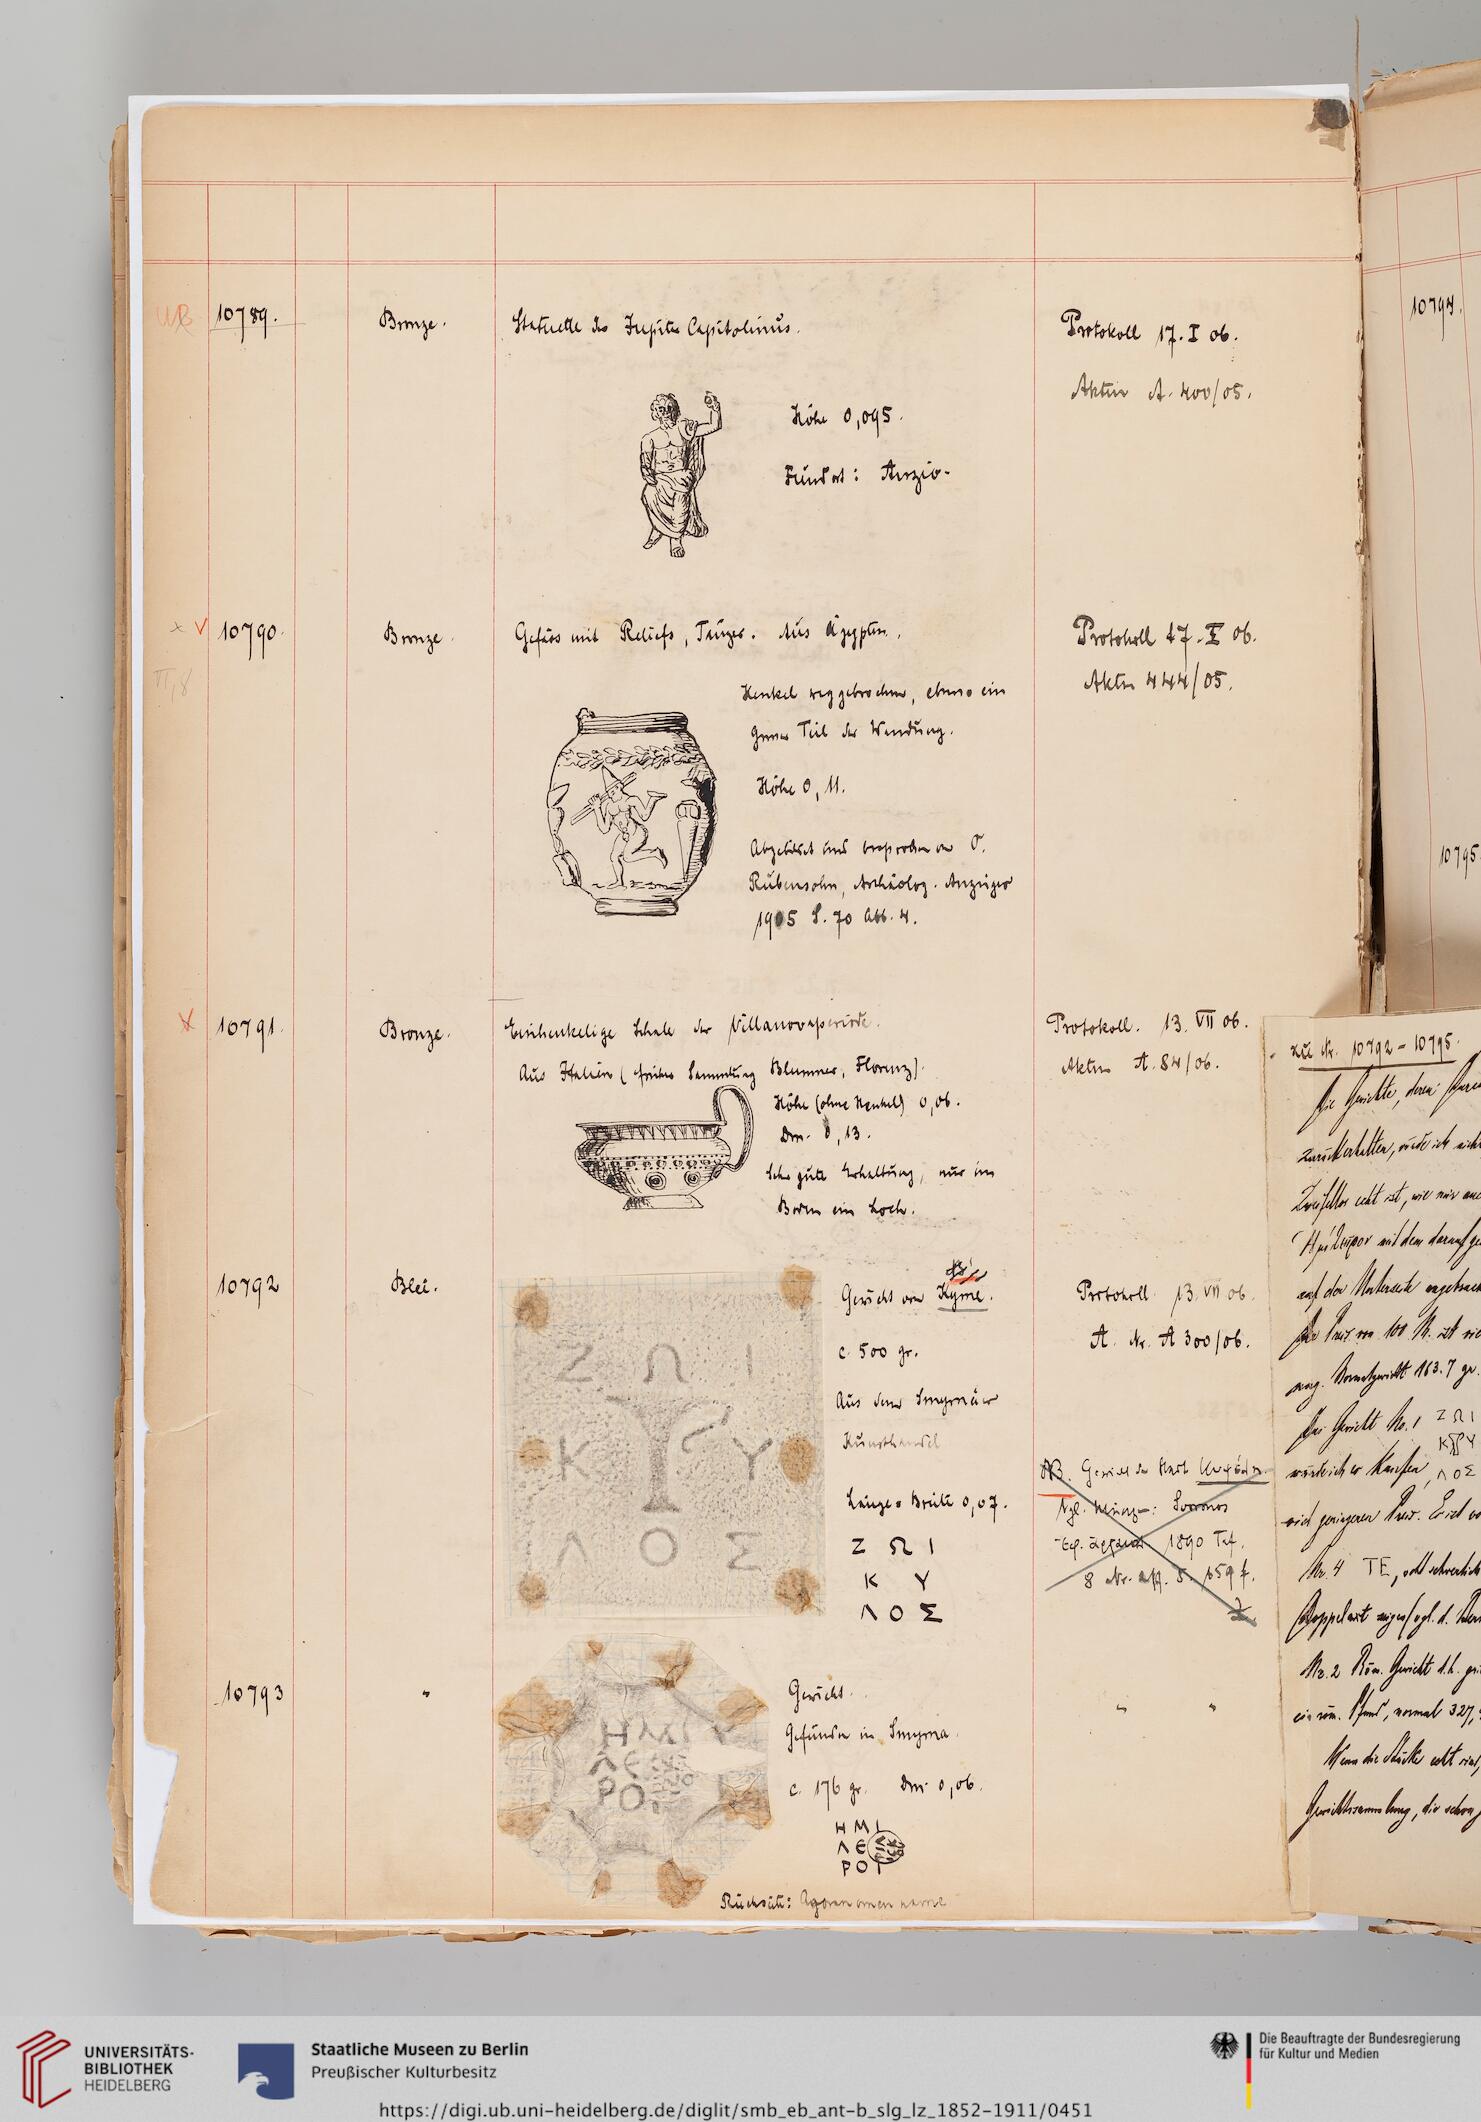 UB 10789. Bronze. Statuette des Jupiter Capitolinus. Protokoll 17. I 06.
Akten A. 400/05.
Höhe 0,095.
Fundort: Anzio.
× V 10790. Bronze. Gefäss mit Reliefs, Tänzer. Aus Ägypten. Protokoll 17. I 06.
II, 8
Akten 444/05.
Henkel weggebrochen, ebenso ein
grosser Teil der Wandung.
Höhe 0,11.
Abgebildet und besprochen von O.
Rubensohn, Archäolog. Anzeiger
1905 S. 70 Abb. 4.
× 10791. Bronze. Einhenkelige Schale der Villanovaperiode. Protokoll. 13. VII 06.
Aus Italien (früher Sammlung Blummer, Florenz). Akten A. 84/06.
Höhe (ohne Henkel) 0,06.
Dm. 0,13.
Sehr gute Erhaltung, nur im
Boden ein Loch.
10792 Blei. Gewicht von Kyme. Protokoll 13. VII 06.
c. 500 gr. A. Nr. A 300/06.
Aus dem Smyrnäer
Kunsthandel
Länge = Breite 0,07.
Ζ Ω Ι
Κ Υ
Λ Ο Σ
Ζ Ω Ι
Κ Υ
Λ Ο Σ
NB. Gewicht der Stadt
Vgl. Svoronos
Ἐφ. ἀρχαιολ. 1890 Taf.
8 Nr. S. 159 f.
10793 " Gewicht. " "
Gefunden in Smyrna.
c. 176 gr. Dm. 0,06.
ΗΜΙ
ΛΕ
ΡΟ
ΗΜΙ
ΛΕ
ΡΟΙ
Rückseite: Agoranomenname
10794.
10795
zu Nr. 10792 – 10795.
Die Gewichte, deren
zurückerhalten, würde ich nicht
Zweifellos echt ist, wie mir
mit dem darauf
auf der Unterseite
Der Preis von 100 M. ist
Normalgewicht 163.7 gr.
Das Gewicht No. 1 Ζ Ω Ι
Κ Υ
würde ich er kaufen, Λ Ο Σ
geringeren Preis. Er ist
Nr. 4 ΤΕ,
Nr. 2 Röm. Gewicht d. h.
ein röm. Pfund, normal 327,
Wenn die Stücke echt sind,
Gewichtssammlung, die schon
UNIVERSITÄTS-
BIBLIOTHEK
HEIDELBERG
Staatliche Museen zu Berlin
Preußischer Kulturbesitz
Die Beauftragte der Bundesregierung
für Kultur und Medien
https://digi.ub.uni-heidelberg.de/diglit/smb_eb_ant-b_slg_lz_1852-1911/0451